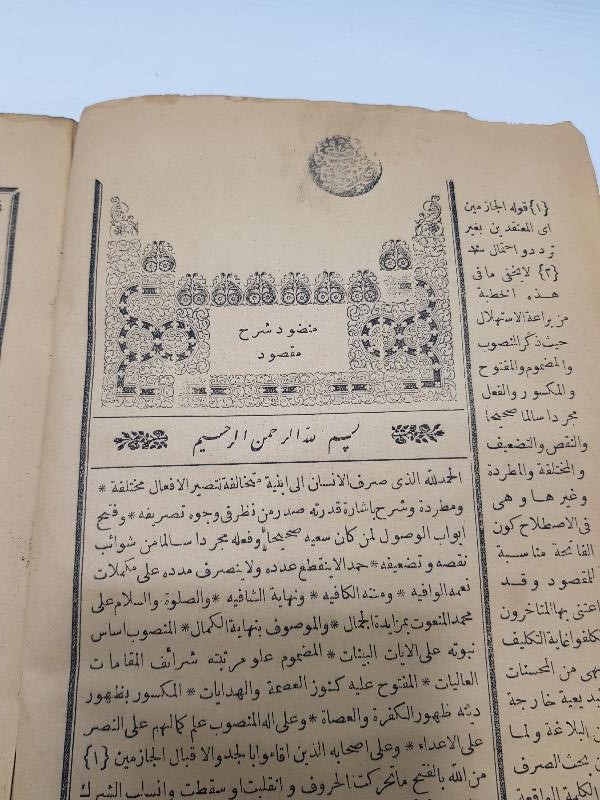 منضود شرح
مقصود
بسم الله الرحمن الرحيم
الحمد لله الذى صرف الانسان الى ابنية متخالفة لتصير الافعال مختلفة *
ومطردة وشرح باشارة قدرته صدر من نظر فى وجوه تصريفه * وفتح
ابواب الوصول لمن كان سعيه صحيحا وفعله مجردا سالما من شوائب
نقصه وتضعيفه * حمدا لا ينقطع عدده ولا ينصرف مدده على مكملات
نعمه الوافيه * ومننه الكافيه * ونهاية الشافيه * والصلوة والسلام على
محمد المنعوت بمزايدة الجمال * والموصوف بنهاية الكمال * المنصوب اساس
نبوته على الايات البينات * المضموم علو مرتبته شرائف المقامات
العاليات * المفتوح عليه كنوز العصمة والهدايات * المكسور بظهور
دينه ظهور الكفرة والعصاة * وعلى اله المنصوب علم كمالهم على النصر
على الاعداء * وعلى اصحابه الذين اقاموا بالجد والاقبال الجازمين {١}
من الله بالفتح ما تحركت الحروف وانقلبت او سقطت وانساب الشرك
{١} قوله الجازمين
اى المعتقدين بغير
تردد واحتمال
{٢} لا يخفى ما فى
هذه الخطبة
من براعة الاستهلال
حيث ذكر النصوب
والمضموم والمفتوح
والمكسور والفعل
مجردا سالما صحيحا
والنقص والتضعيف
والمختلفة والمطردة
وغيرها وهى
فى الاصطلاح كون
الفاتحة مناسبة
للمقصود وقد
اعتنى بها المتاخرون
تكلفوا غاية التكليف
وهى من المحسنات
البديعية خارجة
عن البلاغة ولما
بحث الصرف
الكلمة الواقعة